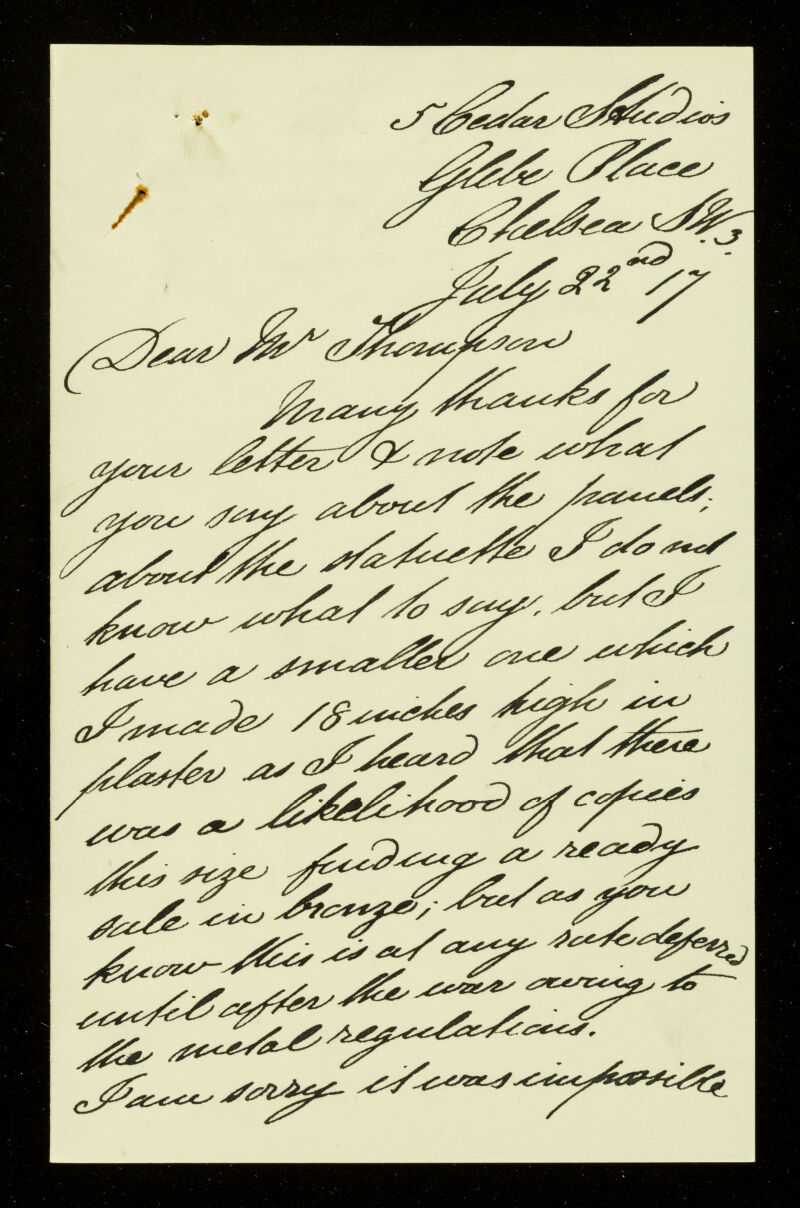 5 Cedar Studios
Glebe Place
Chelsea S.W.3.
July 22nd 17
Dear Mr Thompson
Many thanks for
your letter & note what
you say about the panels;
about the statuette I do not
know what to say. but I
have a smaller one which
I made 18 inches high in
plaster as I heard that there
was a likelihood of copies
this size finding a ready
sale in bronze; but as you
know this is at any rate deferred
until after the war owing to
the metal regulations.
I am sorry it was impossible